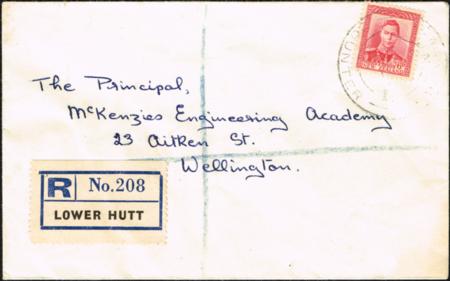 The Principal,
McKenzies Engineering Academy
23 Aitken St.
Wellington.
R No.208
LOWER HUTT
NEW ZEALAND